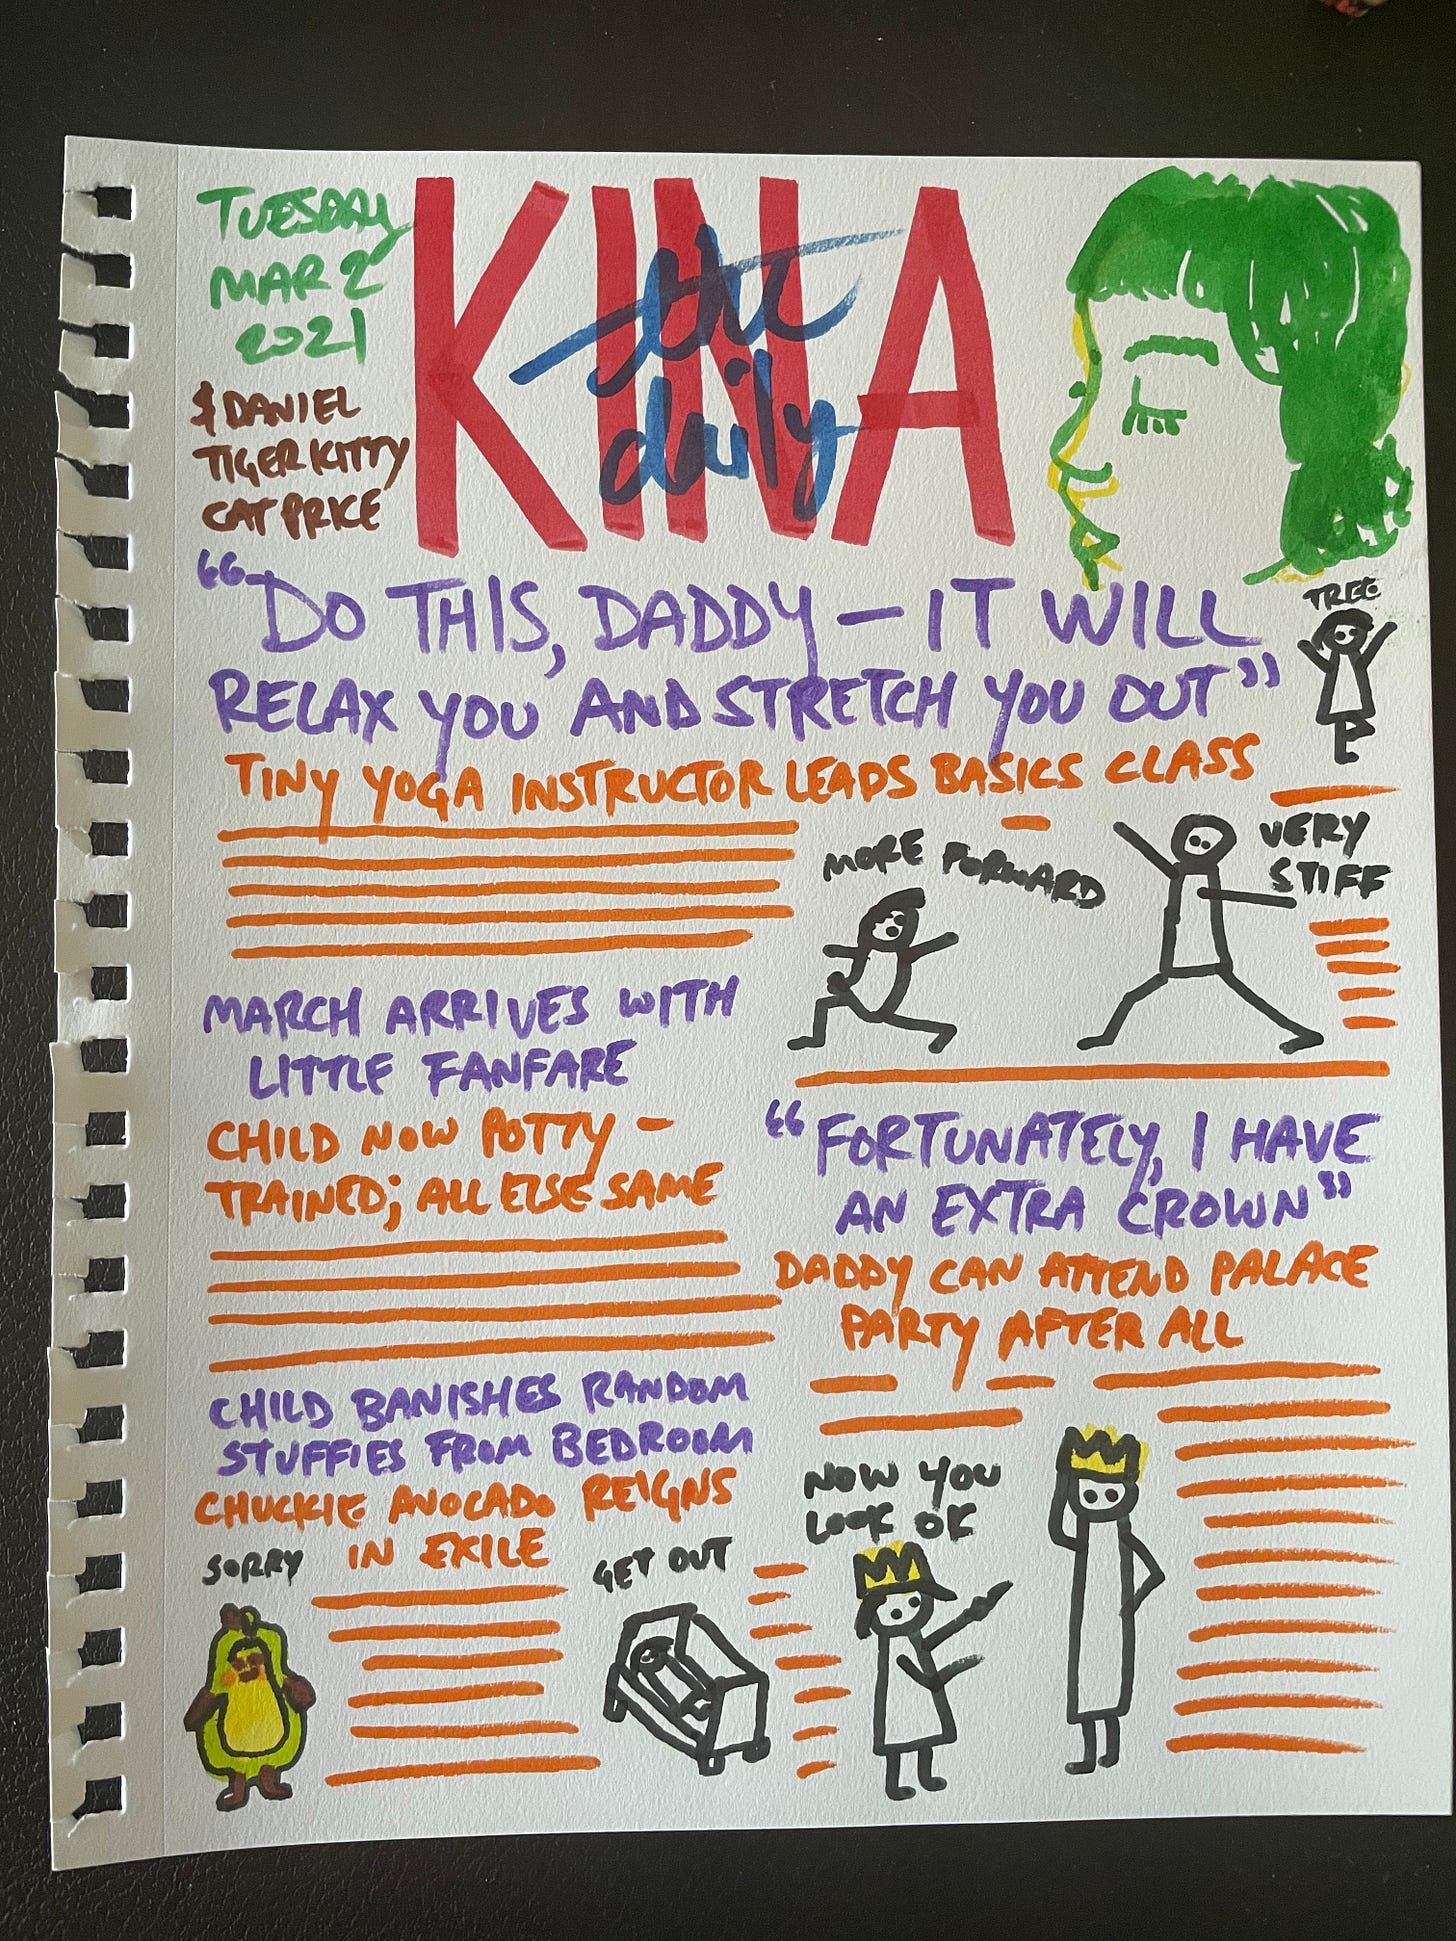 TUESDAY
MAR 2
2021
$ DANIEL
TIGER KITTY
CAT PRICE
KINA
the
daily
"DO THIS, DADDY — IT WILL
RELAX YOU AND STRETCH YOU OUT"
TREE
TINY YOGA INSTRUCTOR LEADS BASICS CLASS
MORE FORWARD
VERY
STIFF
MARCH ARRIVES WITH
LITTLE FANFARE
CHILD NOW POTTY-
TRAINED; ALL ELSE SAME
"FORTUNATELY, I HAVE
AN EXTRA CROWN"
DADDY CAN ATTEND PALACE
PARTY AFTER ALL
CHILD BANISHES RANDOM
STUFFIES FROM BEDROOM
CHUCKIE AVOCADO REIGNS
IN EXILE
SORRY
GET OUT
NOW YOU
LOOK OK